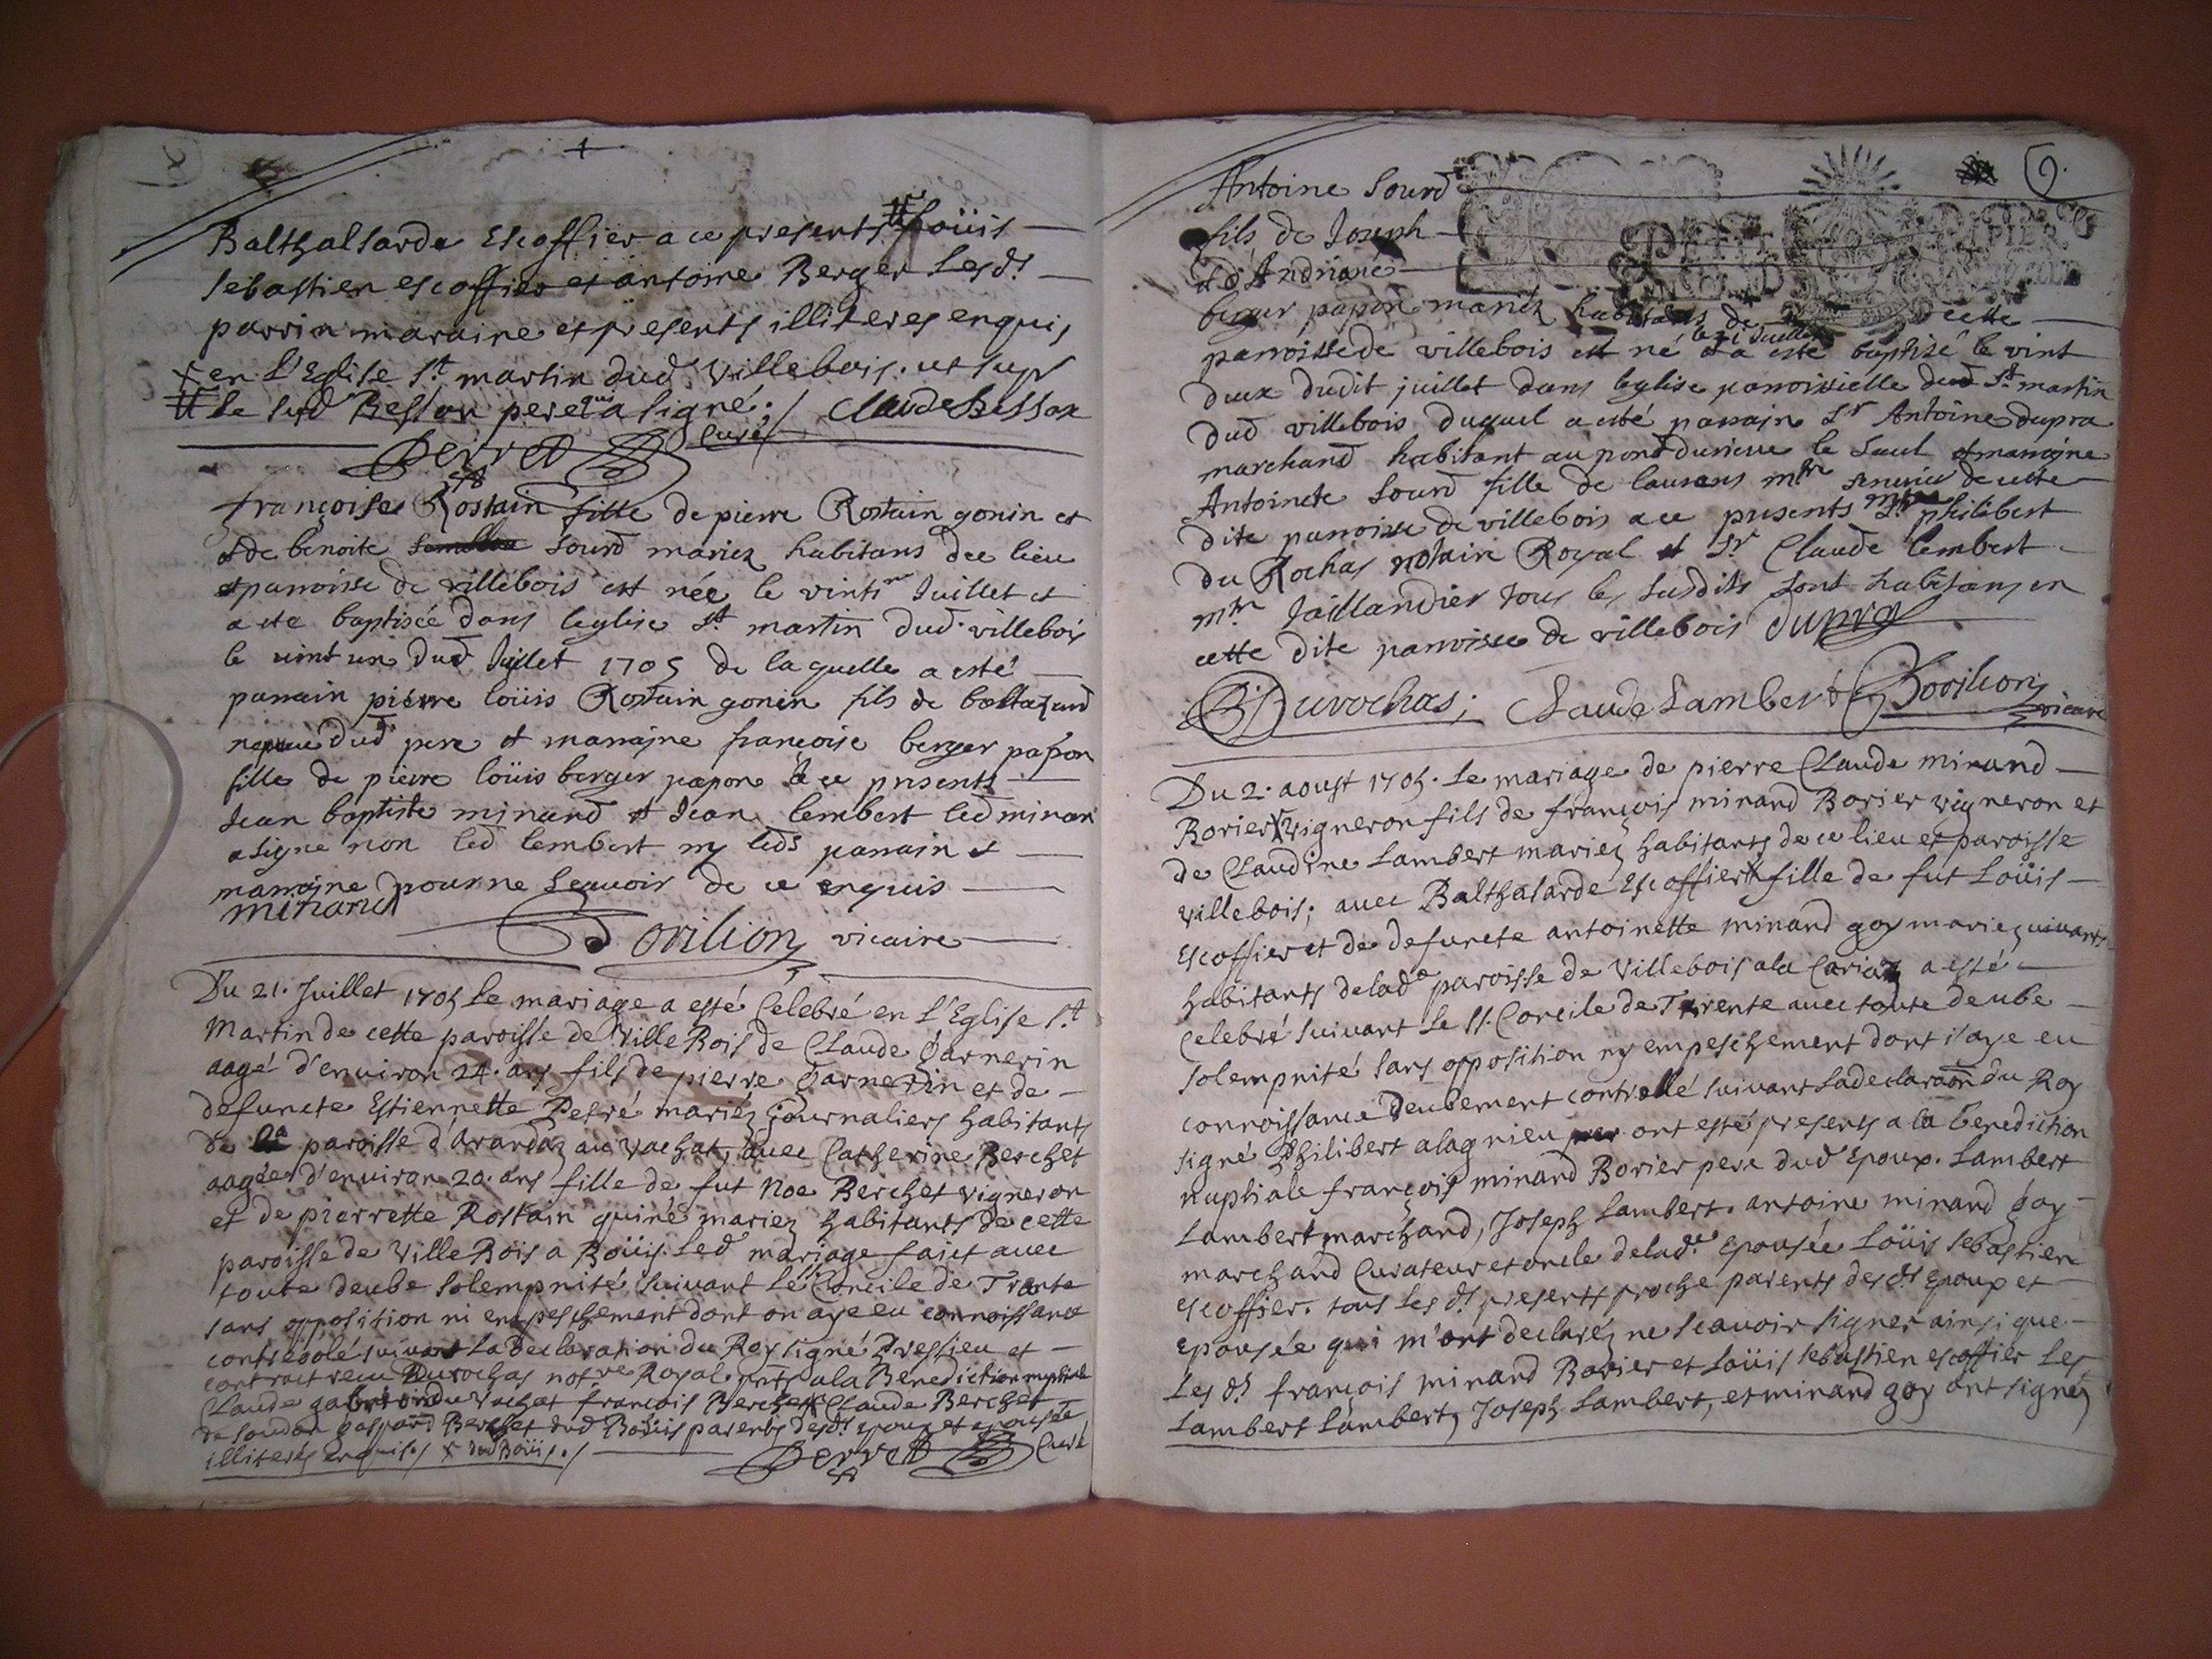 Balthalsarde Escoffier a ce presents Loüis
sebastien escoffier et antoine Berger Lesd.
parrin maraine et presents illiteres enquis
x en l'Eglise St martin dud Villebois. ut supr
# Le susd Besson pere qui a signé ./ Claude Besson
Perret Curé
françoise Rostain fille de pierre Rostain gonin et
et de benoite Sourd mariez habitans dee lieu
et parroisse de villebois est née le vint Juillet et
a ete baptisée dans leglise St martin dud. villebois
le vint un dud Juillet 1705 de laquelle a esté
parrain pierre loüis Rostain gonin fils de baltazard
nepueu dud pere et marrajne françoise berger papon
fille de pierre loüis berger papon a ce presents
Jean baptiste minand et Jean lembert led minan
a signe non led lembert ny leds parrain et
marrajne pour ne scauoir de ce enquis
minand
Dorilion vicaire
Du 21. Juillet 1705 Le mariage a esté Celebré en L'Eglise St
Martin de cette paroisse de Ville Bois de Claude Garnerin
aagé d'environ 24. ans fils de pierre Garnerin et de
defuncte Estiennette mariéz Journaliers habitants
de la paroisse d'Arandaz au Vachat, avec Catherine Berchet
aagée d'environ 20. ans fille de fut Noe Berchet vigneron
et de pierrette Rostain guiné mariez habitants de cette
paroisse de Ville Bois a Boüis. Led mariage faict avec
toute deube solempnité, suivant le St Concile de Trante
sans opposition ni empeschement dont on aye eu connoissance
contrerolé suivant La declaration du Roy signé Dressieu et
contract receu Durochas notre Royal. pnts a la Benediction nuptiale
Claude du Vachat francois Berchet Claude Berchet
de soudon gaspard Berchet dud Boüis parents desd. epoux et epousée
illiterés enquis ./ x dud Boüis ./
Perret Curé
9.
Antoine Sourd
fils de Joseph
et d'Andriane
berger papon mariéz habitans de cette
parroisse de villebois est né le 21 Juillet et a esté baptisé le vint
deux dudit juillet dans leglise parroissielle dud St martin
dud villebois duquel a esté parrain Sr Antoine dupra
marchand habitant au pont le Saut et marrajne
Antoinete Sourd fille de laurens mtre de cette
dite parroisse de villebois a ce presents mtre philibert
du Rochas notaire Royal et Sr Claude lembert
mtre Taillandier tous les susdits sont habitans en
cette dite parroisse de villebois Dupra
Durochas; Claude Lambert Dorilion
vicaire
Du 2. aoust 1705. Le mariage de pierre Claude minand
Borier vigneron fils de françois minand Borier vigneron et
de Claudine Lambert mariez habitants de ce lieu et paroisse
villebois; avec Balthasarde Escoffier fille de fut Loüis
Escoffier et de defuncte antoinette minand goy mariez vivants
habitants de lad. paroisse de Villebois a la Cariaz a esté
Celebré suivant le St. Concile de Trente avec toute deube
solempnité sans opposition ny empeschement dont j'aye eu
connoissance deubement controllé suivant la declaraon du Roy
signé Philibert a lagnieu ont esté presents a la benediction
nuptiale françois minand Borier pere dud Epoux. Lambert
Lambert marchand, Joseph Lambert. antoine minand goy
marchand Curateur et oncle de lade. epousée Loüis sebastien
escoffier. tous Les d. presents proche parents desd. Epoux et
epousée qui m'ont declaréz ne scauoir signer ainsi que
Les d. françois minand Borier et Loüis sebastien escoffier Les
Lambert Lambert, Joseph Lambert, et minand goy ont signéz